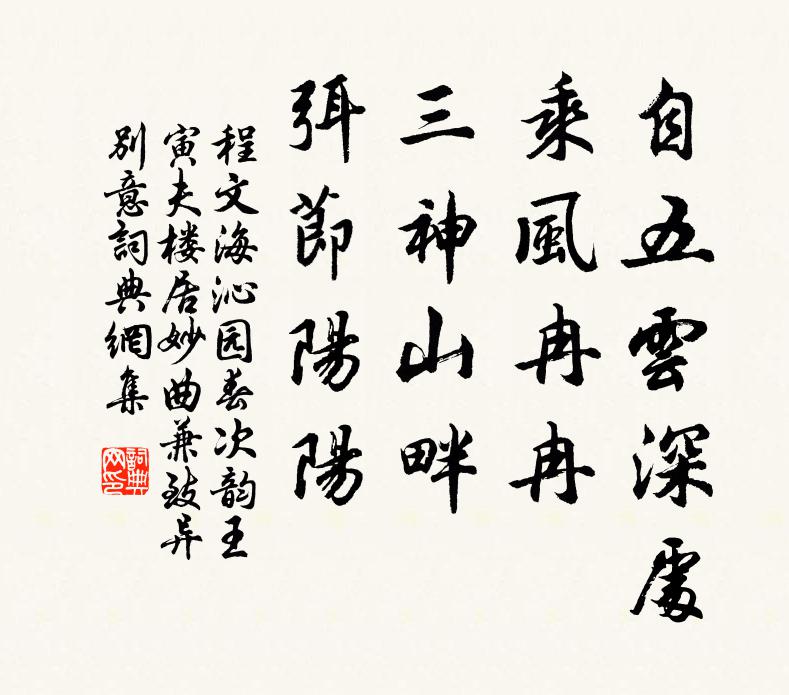 自五雲深處
乘風冉冉
三神山畔
弭節陽陽
程文海沁园春次韵王
寅夫楼居妙曲兼致异
别意詞典網集
詞典
网印